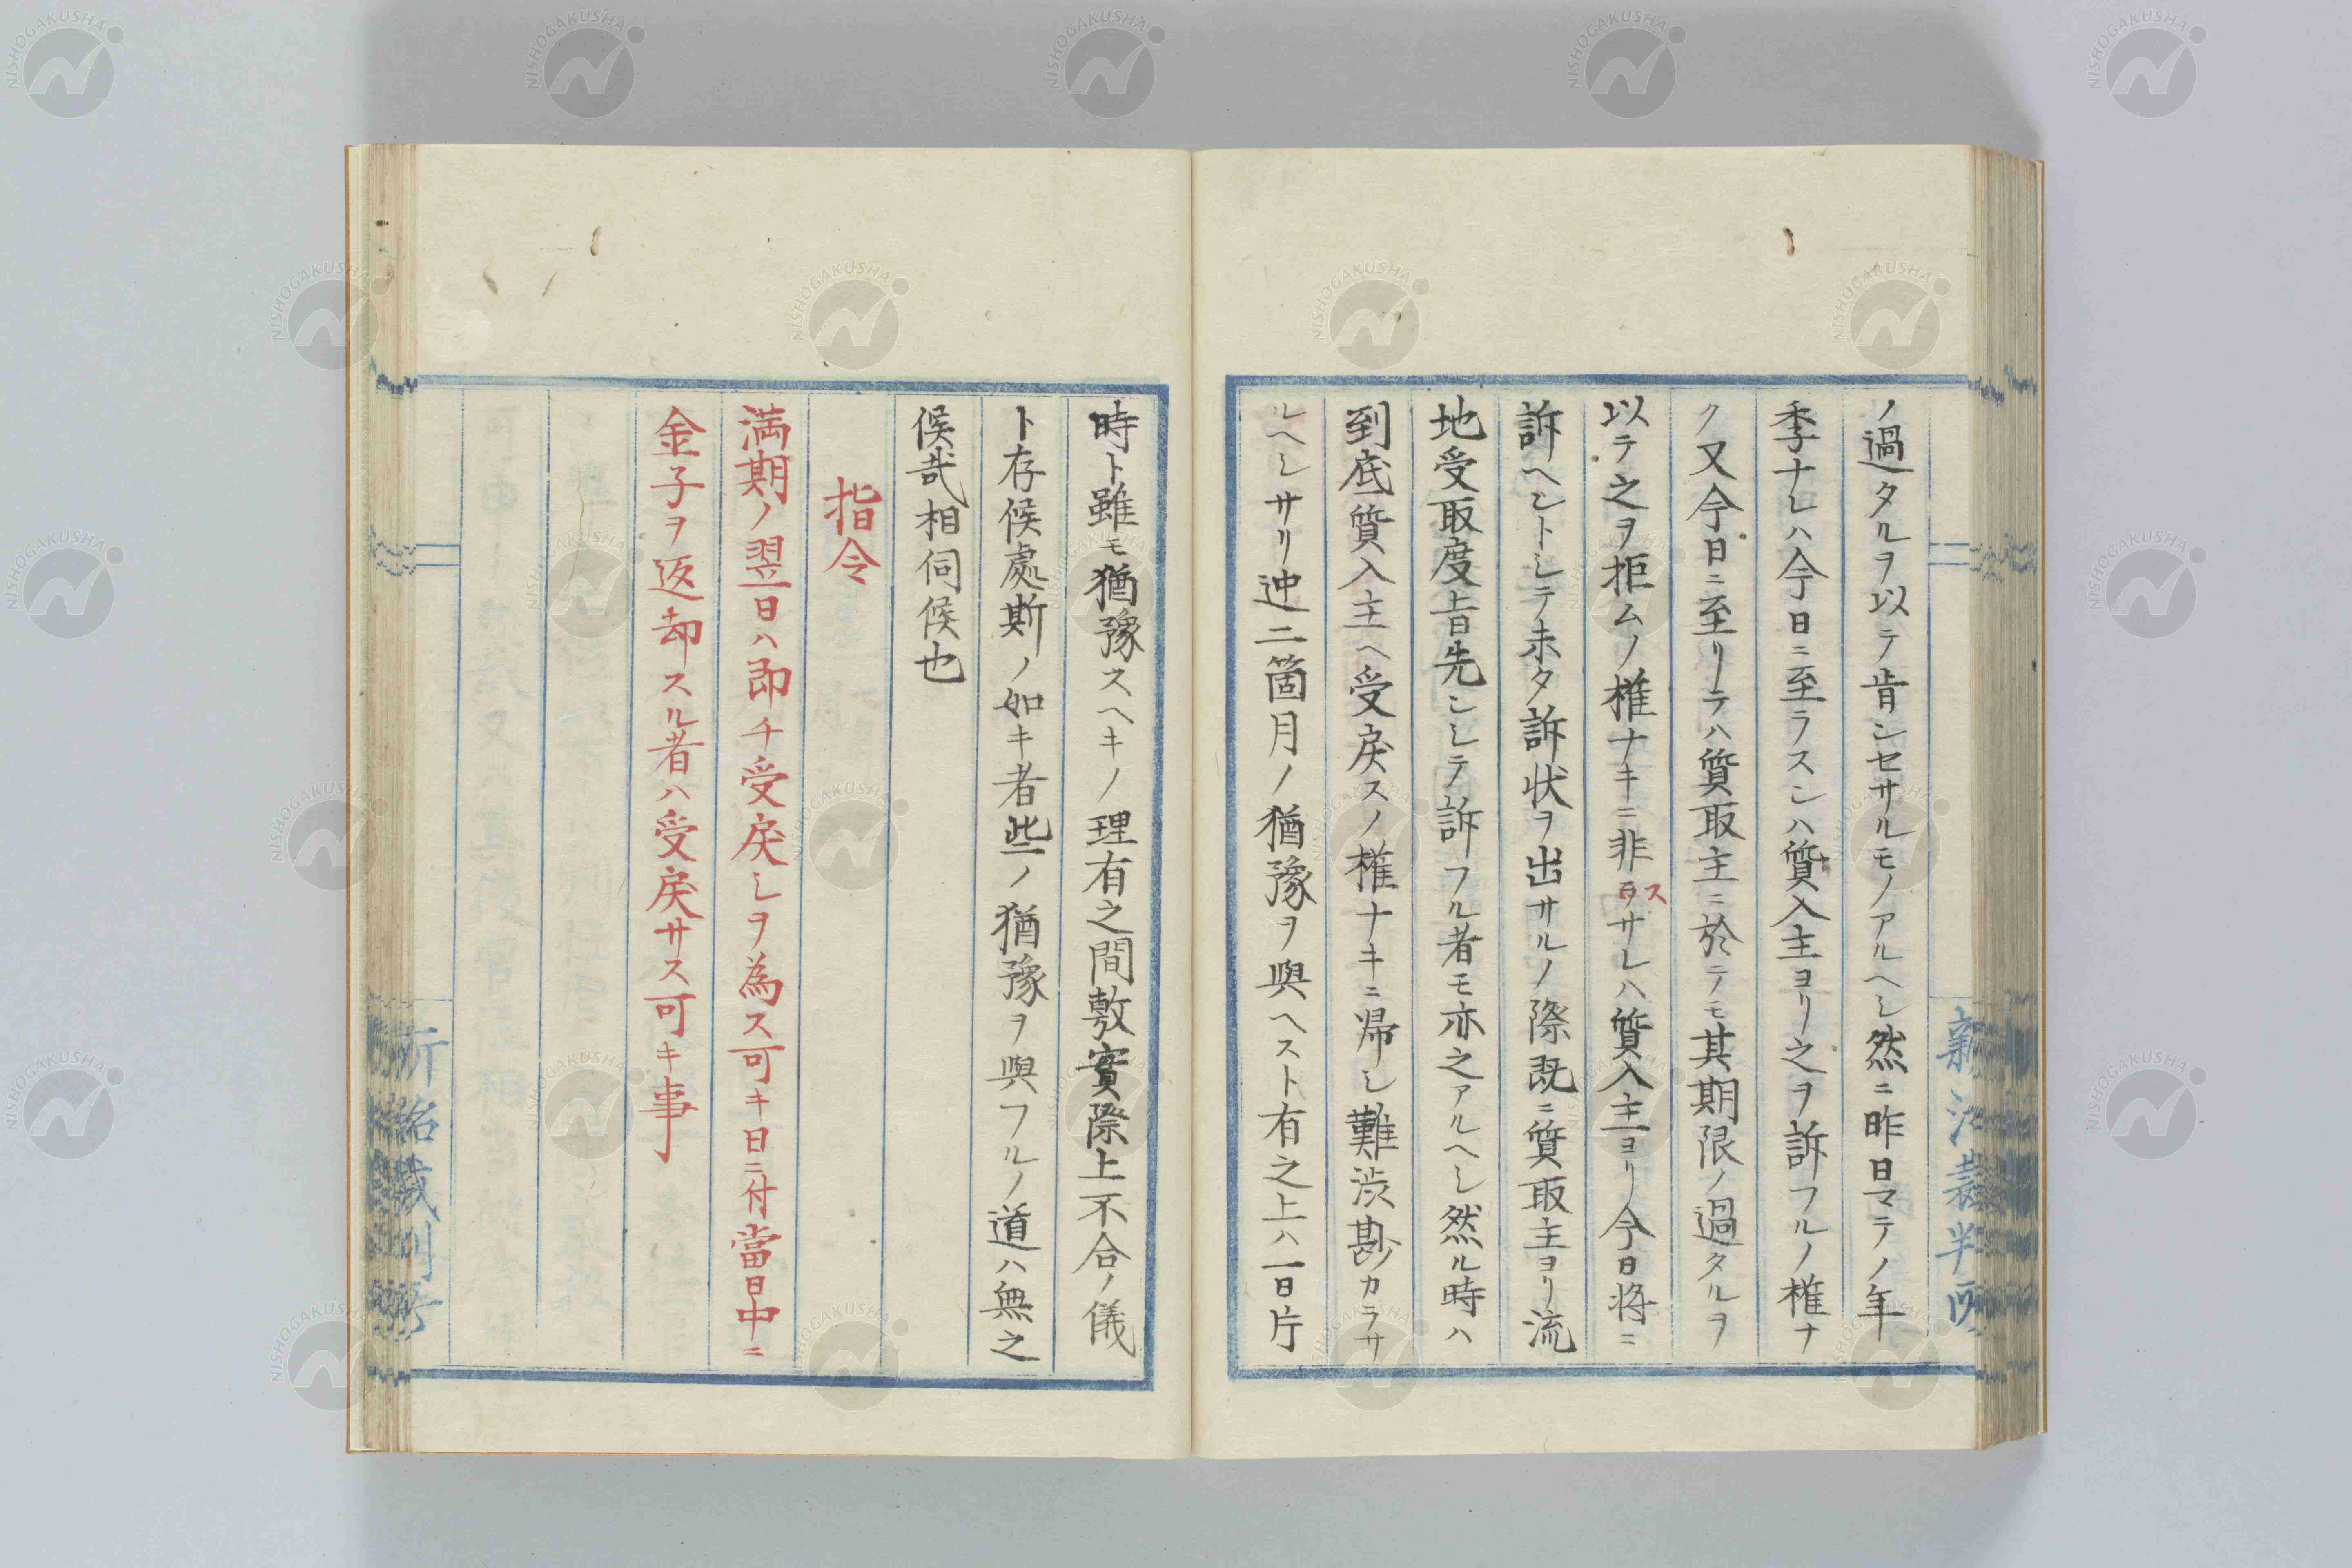 ノ過タルヲ以テ肯ンセサルモノアルヘシ然ニ昨日マテノ年
季ナレハ今日ニ至ラスンハ質入主ヨリ之ヲ訴フルノ権ナ
ク又今日ニ至リテハ質取主ニ於テモ其期限ノ過タルヲ
以テ之ヲ拒ムノ権ナキニ非スサレハ質入主ヨリ今日将ニ
訴ヘントシテ未タ訴状ヲ出サルノ際既ニ質取主ヨリ流
地受取度旨先ンシテ訴フル者モ亦之アルヘシ然ル時ハ
到底質入主ヘ受戻スノ権ナキニ帰シ難渋尠カラサ
ルヘシサリ迚二箇月ノ猶豫ヲ與ヘスト有之上ハ一日片
時ト雖モ猶豫スヘキノ理有之間敷實際上不合ノ儀
ト存候處斯ノ如キ者些ノ猶豫ヲ與フルノ道ハ無之
候哉相伺候也
指令
満期ノ翌日ハ即チ受戻シヲ為ス可キ日ニ付當日中ニ
金子ヲ返却スル者ハ受戻サス可キ事
新治裁判所
新治裁判所
NISHOGAKUSHA